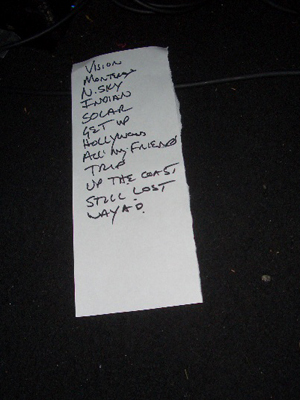 VISION
MONTUESE
N. SKY
INDIAN
SOLAR
GET UP
HOLLYWOOD
ALL MY FRIENDS
TRIP
UP THE COAST
STILL LOST